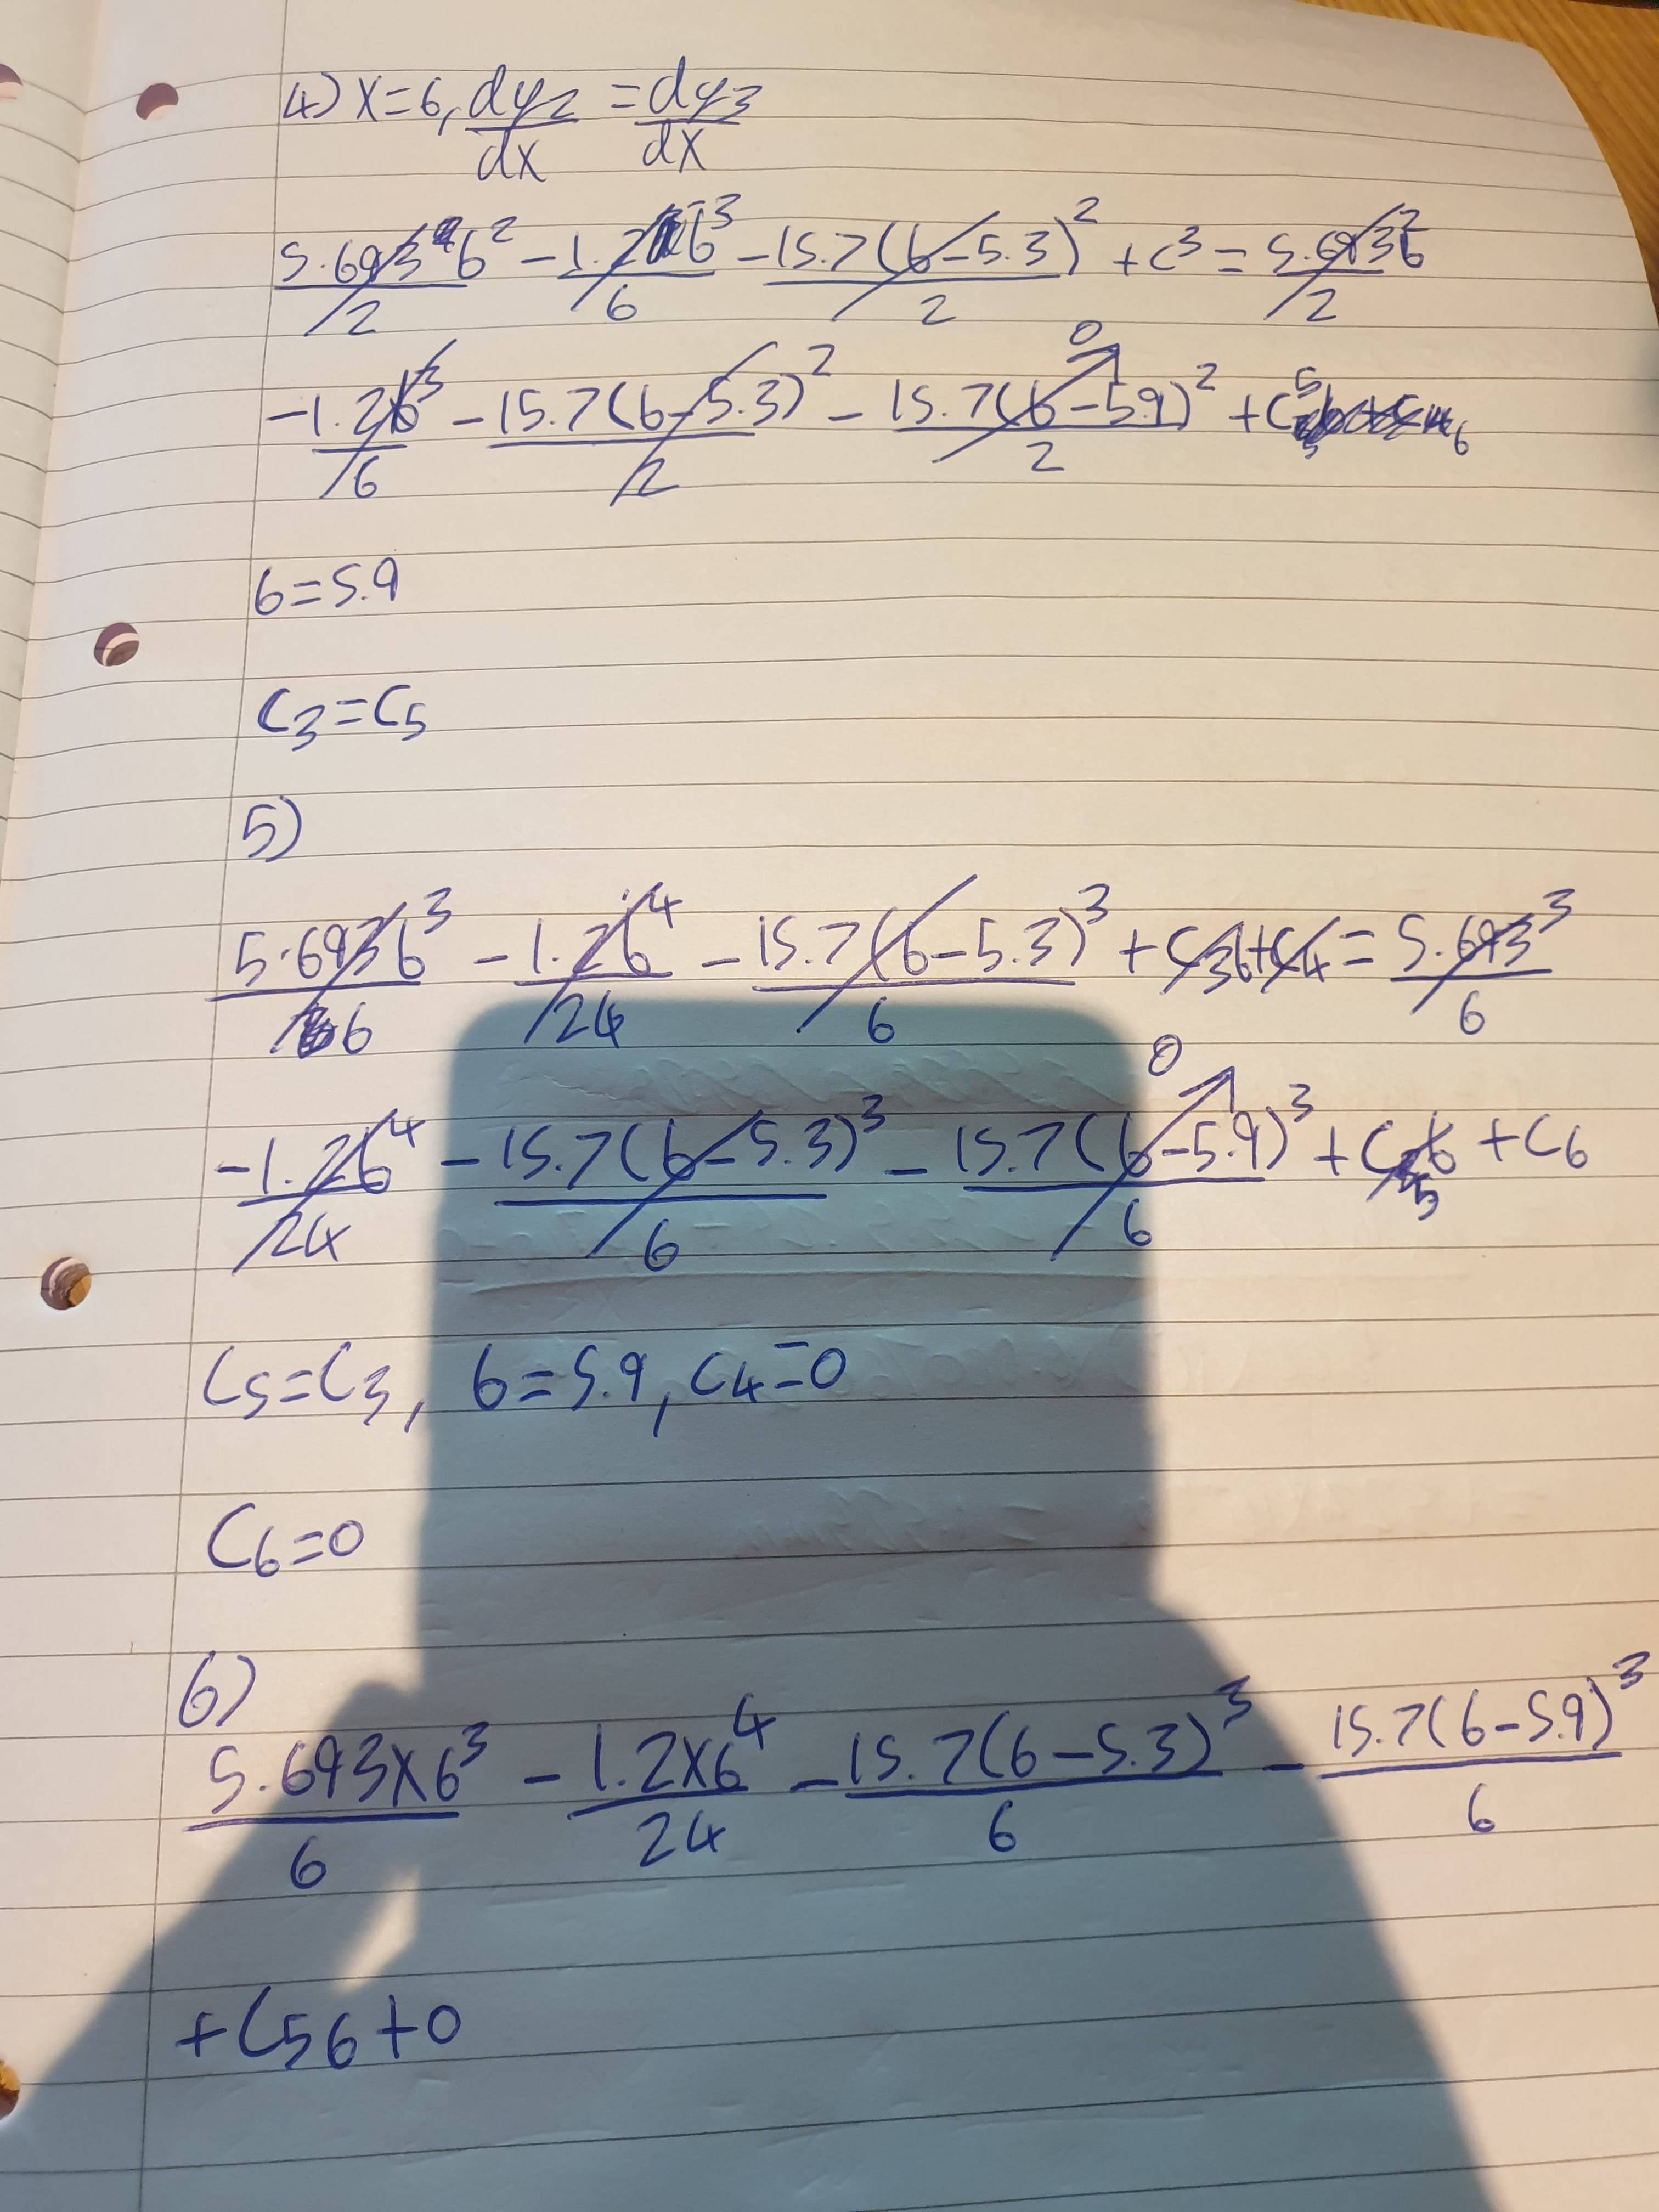 4) x=6, dy2/dx = dy3/dx
5.693 6²/2 - 1.2 6³/6 - 15.7(6-5.3)²/2 + C3 = 5.693 6²/2
-1.26³/6 - 15.7(6-5.3)²/2 - 15.7(6-5.9)²/2 → 0 + C5
6=5.9
C3=C5
5)
5.693 6³/6 - 1.26⁴/24 - 15.7(6-5.3)³/6 + C36+C4 = 5.693³/6
-1.26⁴/24 - 15.7(6-5.3)³/6 - 15.7(6-5.9)³/6 → 0 + C56 + C6
C5=C3, 6=5.9, C4=0
C6=0
6)
5.693x6³/6 - 1.2x6⁴/24 - 15.7(6-5.3)³/6 - 15.7(6-5.9)³/6
+C56+0